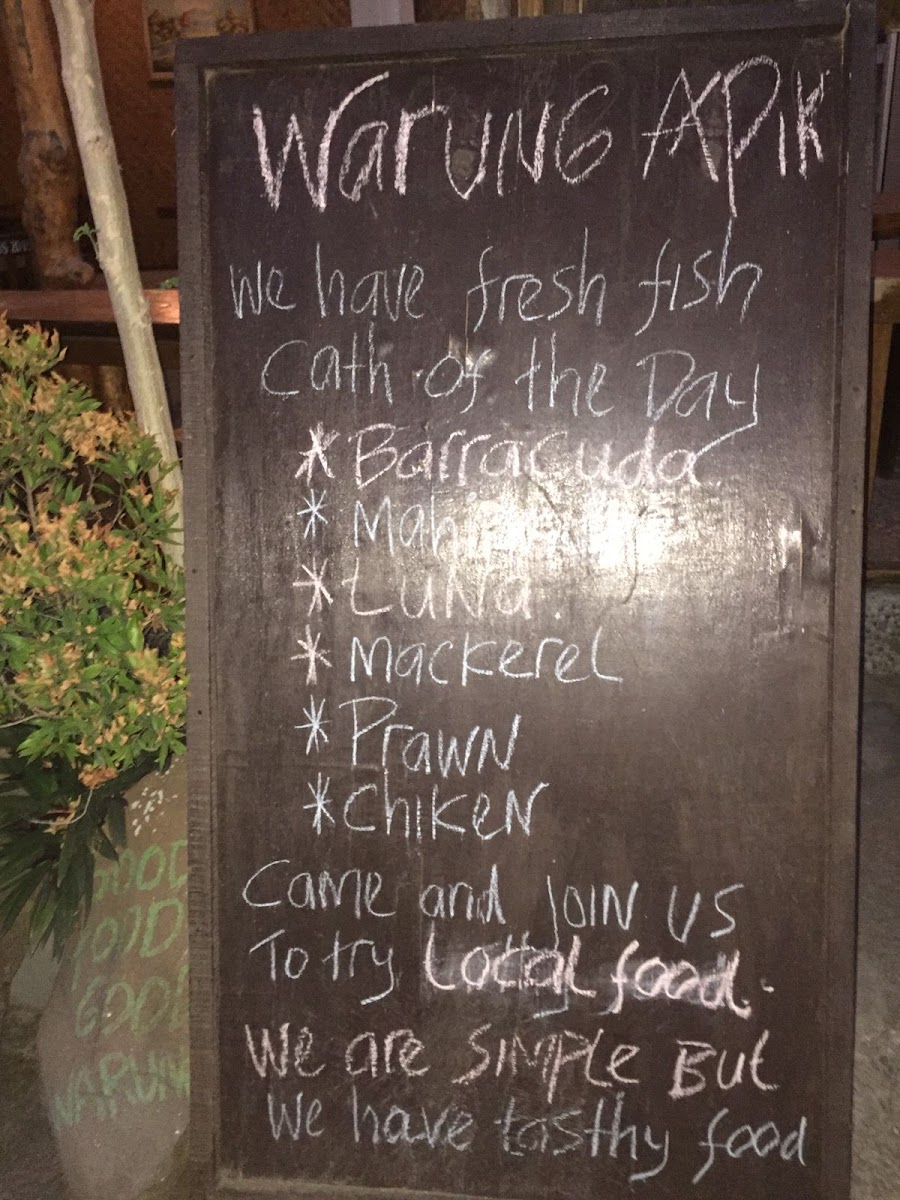 Warung Apik
We have fresh fish
Cath of the Day
* Barracuda
* Mahi
* Tuna.
* Mackerel
* Prawn
* Chiken
Came and join us
To try Local food.
We are SIMPLE But
We have tasthy food
GOOD
FOOD
GOOD
WARUNG